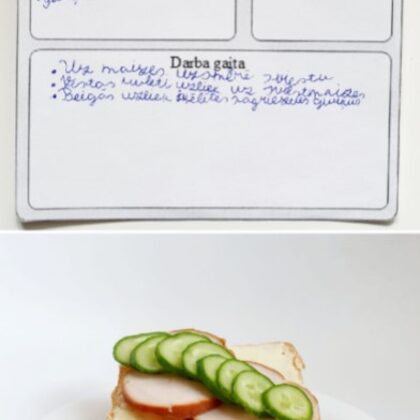 Darba gaita
• Uz maizes uzsmērē sviestu
• Vistas ruleti uzliek uz sviestmaizes
• Beigās uzliek sagrieztus gurķus